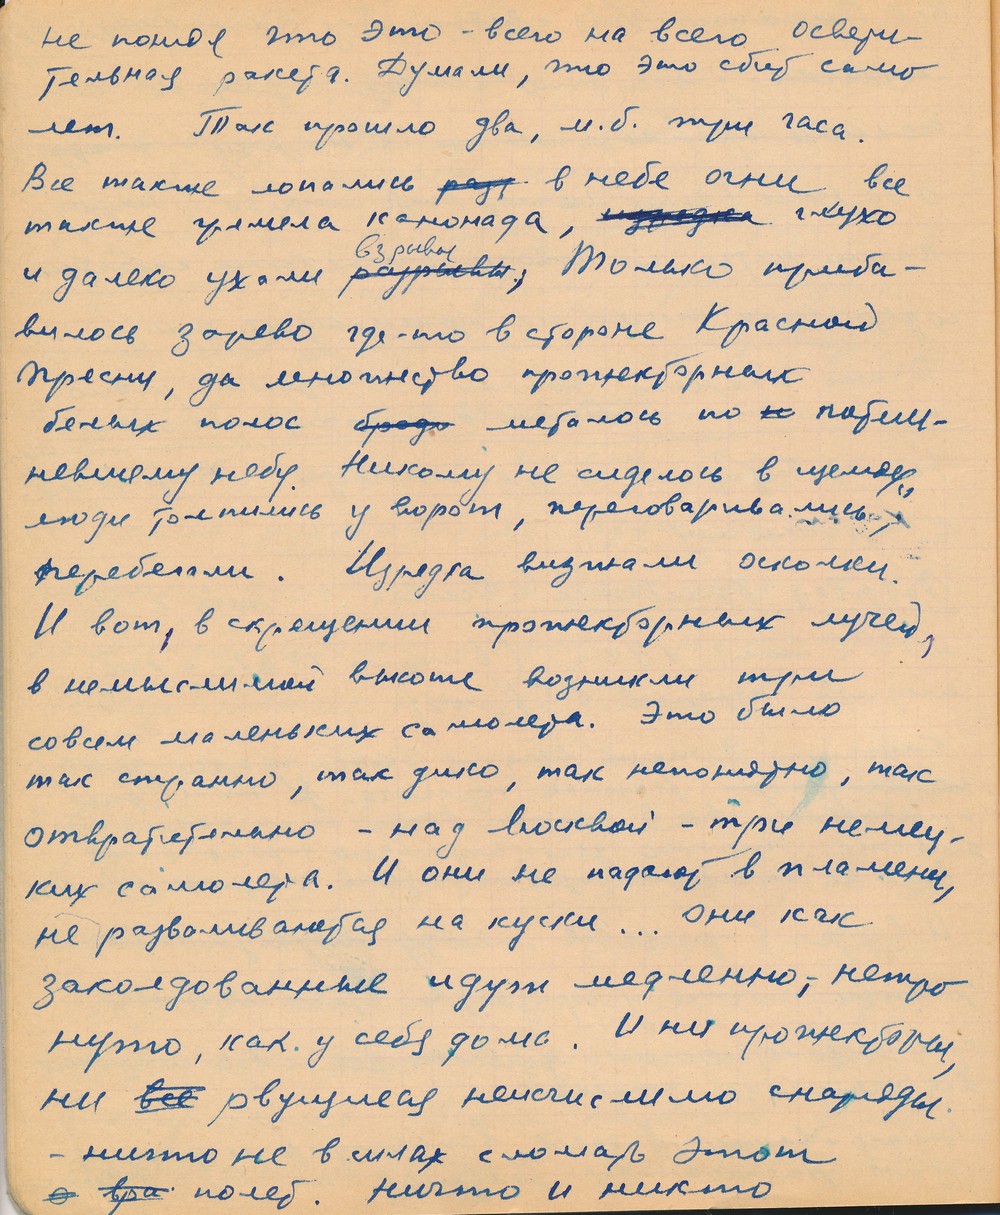 не поняв что это - всего на всего освети-
тельная ракета. Думали, что это сбит само
лет. Так прошло два, м.б. три часа.
Все также лопались разр в небе огни все
также гремела канонада, изредка глухо
и далеко ухали разрывы взрывы, Только приба-
вилось зарево где-то в стороне Красной
Пресни, да множество прожекторных
белых полос бродо металось по н потем-
невшему небу. Никому не сиделось в щелях,
люди толпились у ворот, переговаривались,
перебегали. Изредка визжали осколки.
И вот, в скрещении прожекторных лучей,
в немыслимой высоте возникли три
совсем маленьких самолета. Это было
так странно, так дико, так непонятно, так
отвратительно - над Москвой - три немец-
ких самолета. И они не падают в пламени,
не разваливаются на куски... они как
заколдованные идут медленно, нетро
нуто, как у себя дома. И ни прожекторы,
ни все рвущиеся неисчислимо снаряды
- ничто не в силах сломать этот
о вра полет. Ничто и никто